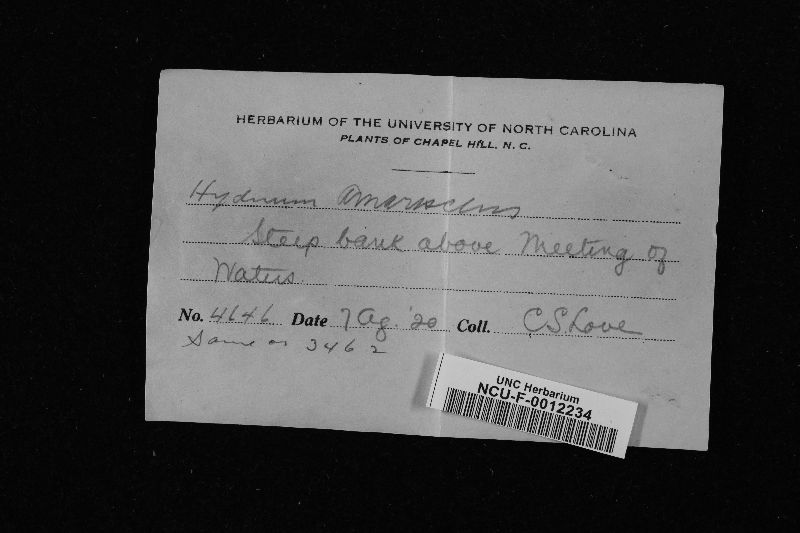 HERBARIUM OF THE UNIVERSITY OF NORTH CAROLINA
PLANTS OF CHAPEL HILL, N. C.
Hydnum amarescens
Steep bank above Meeting of
Waters.
No. 4646 Date 7 Ag. '20 Coll. C S Love
Same as 3462
UNC Herbarium
NCU-F-0012234